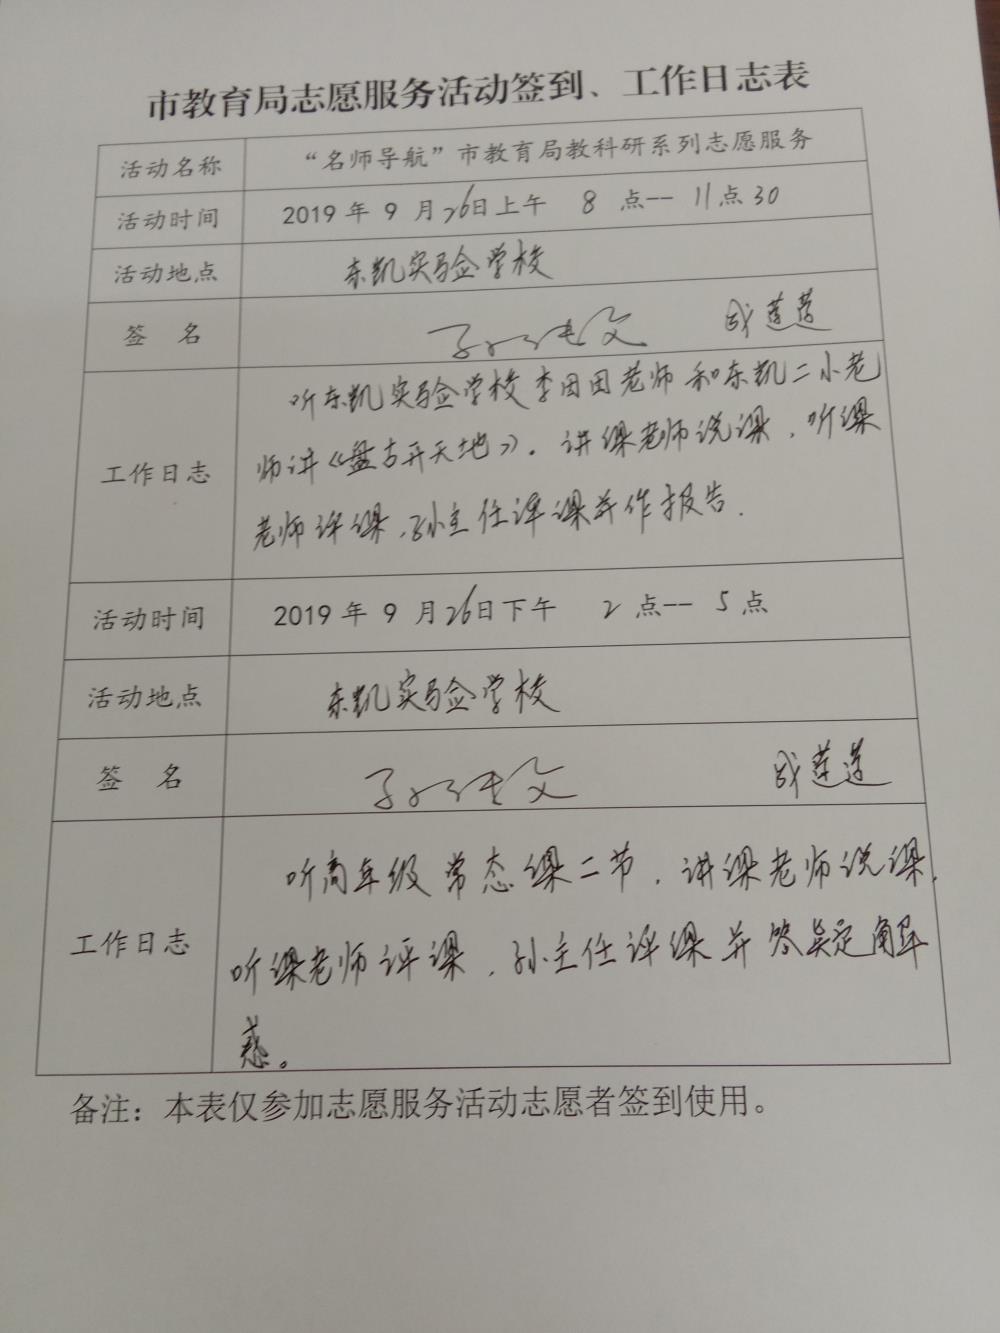 市教育局志愿服务活动签到、工作日志表
活动名称 “名师导航”市教育局教科研系列志愿服务
活动时间 2019年9月26日上午 8点--11点30
活动地点 东凯实验学校
签 名 成莲莲
听东凯实验学校李田田老师和东凯二小老
工作日志 师讲《盘古开天地》。讲课老师说课,听课
老师评课,孙主任评课并作报告.
活动时间 2019年9月26日下午 2点--5点
活动地点 东凯实验学校
签 名 成莲莲
听高年级常态课二节,讲课老师说课,
工作日志 听课老师评课,孙主任评课并答疑解
惑。
备注：本表仅参加志愿服务活动志愿者签到使用。